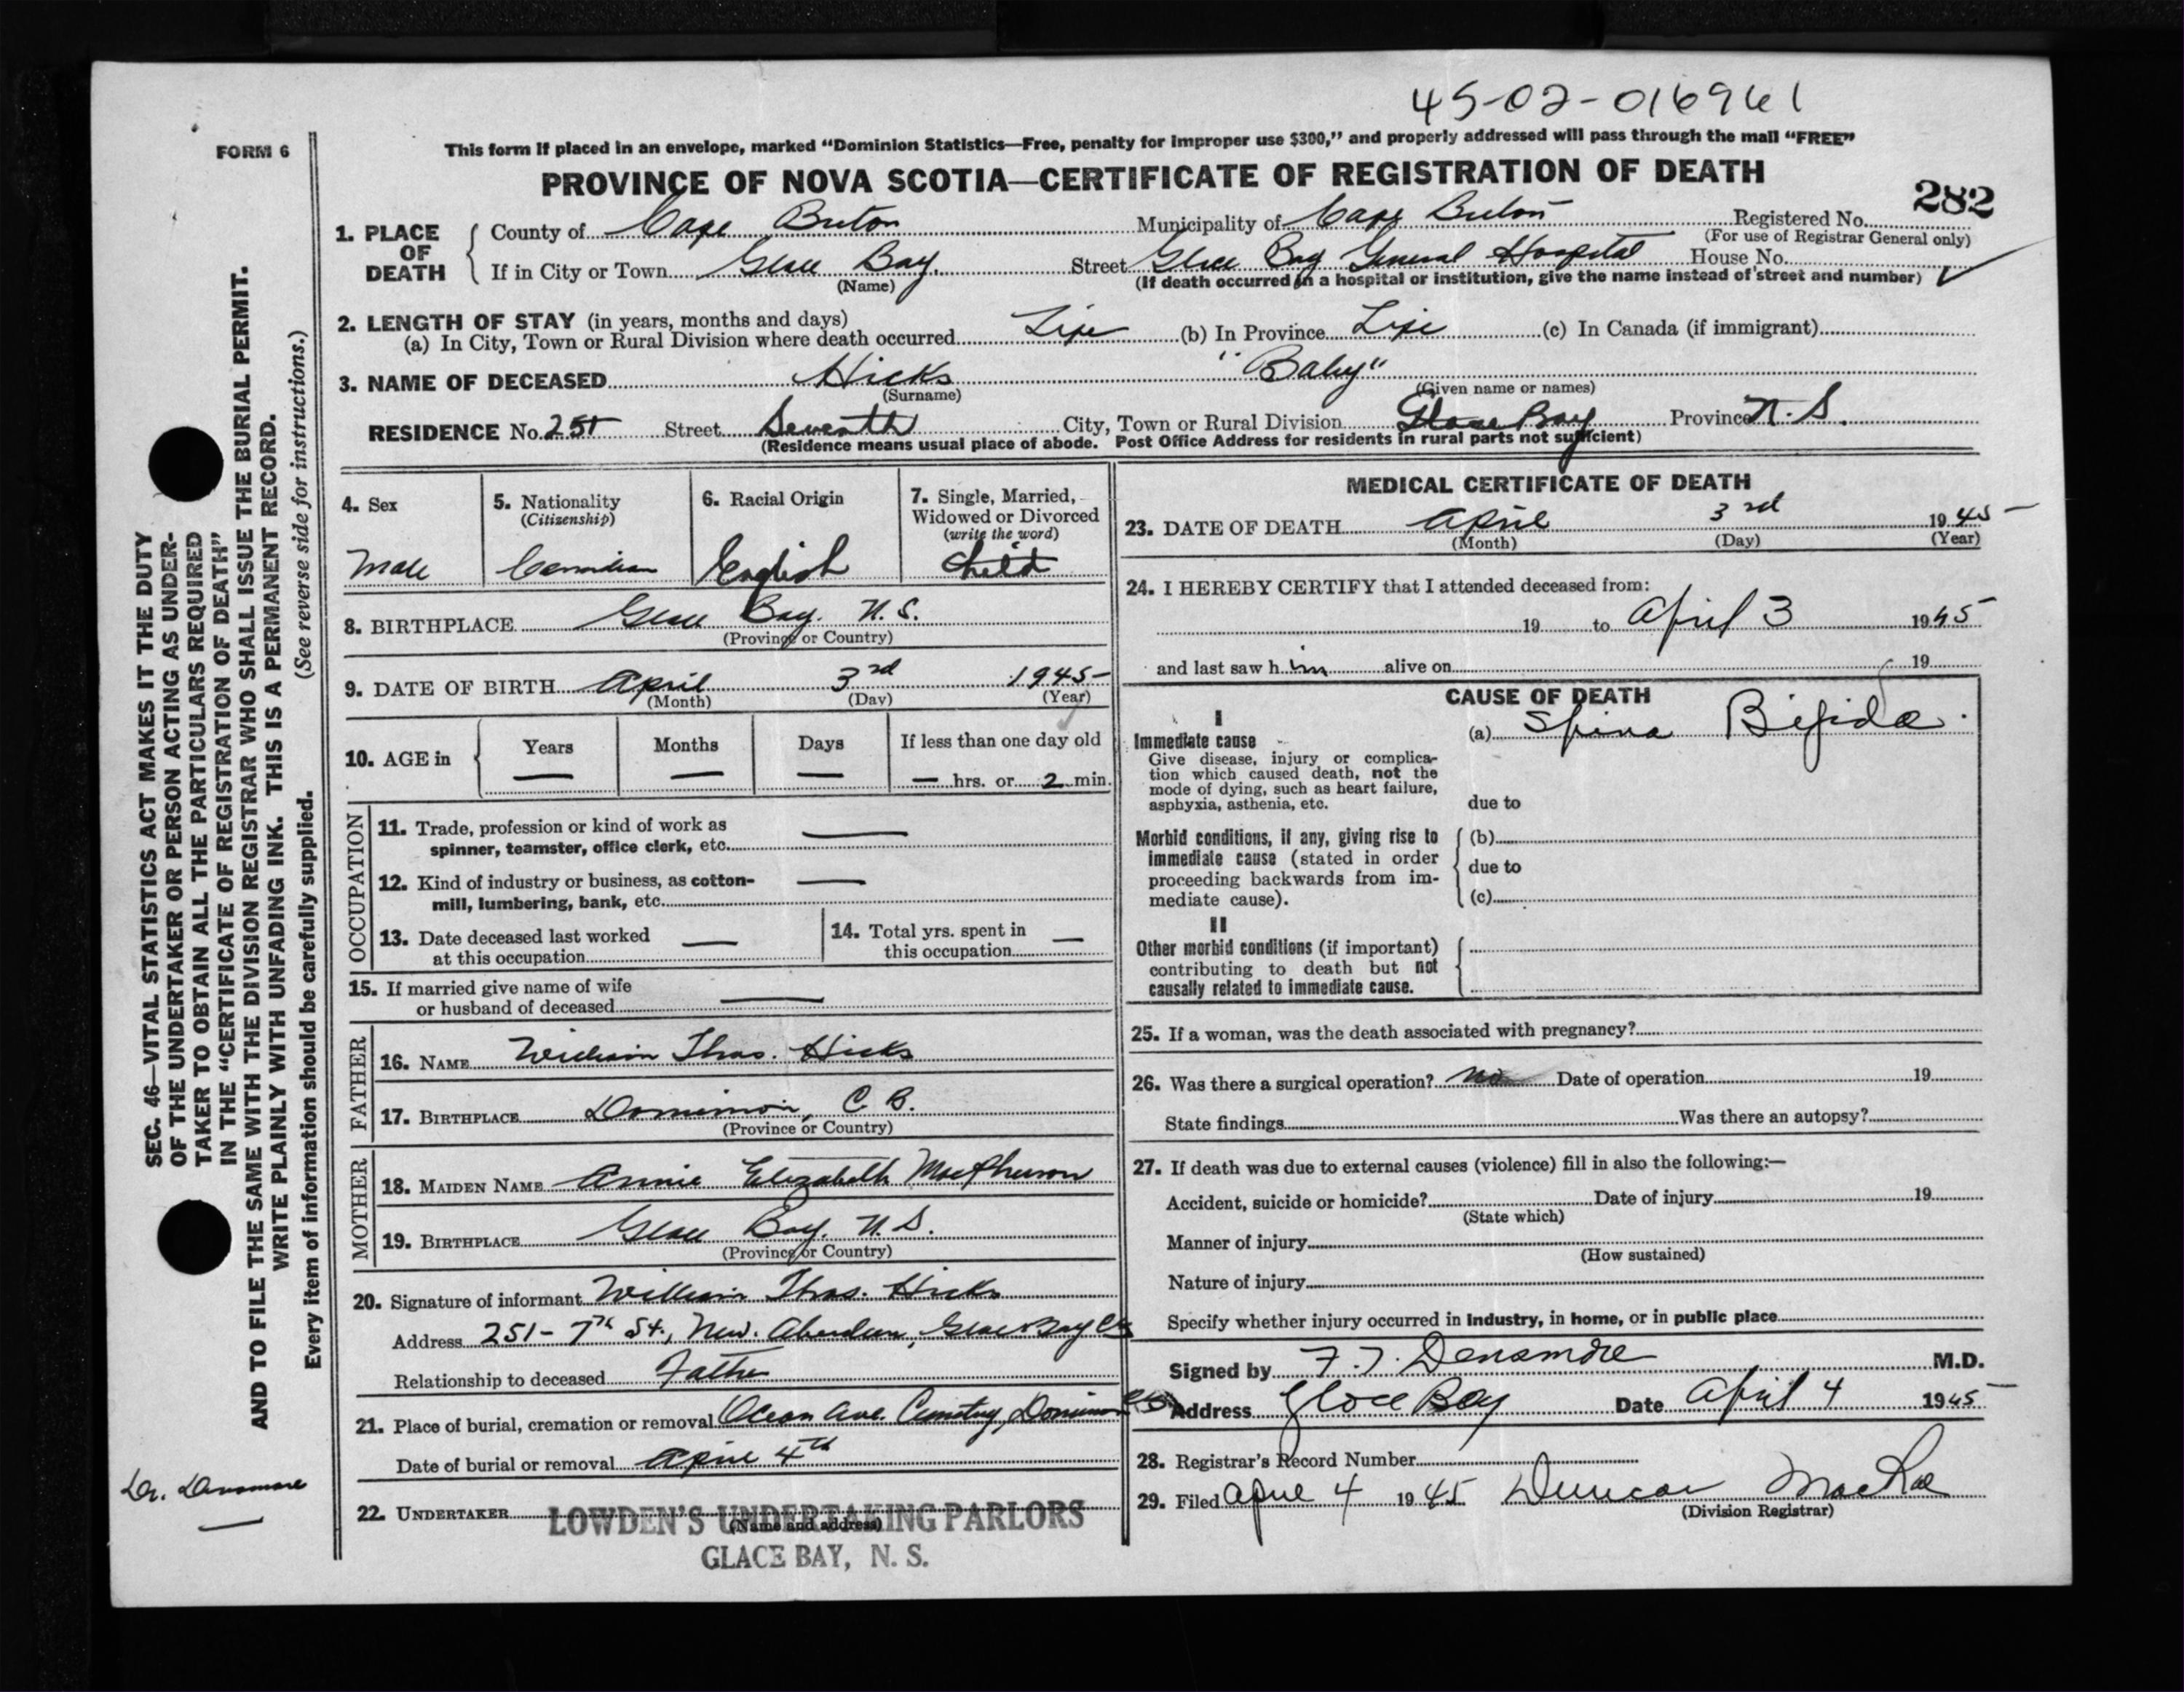 45-02-016961
FORM 6
This form if placed in an envelope, marked “Dominion Statistics—Free, penalty for improper use $300,” and properly addressed will pass through the mail “FREE”
PROVINCE OF NOVA SCOTIA—CERTIFICATE OF REGISTRATION OF DEATH
282
1. PLACE OF DEATH
County of Cape Breton Municipality of Cape Breton Registered No.
(For use of Registrar General only)
If in City or Town Glace Bay. Street Glace Bay General Hospital House No.
(Name) (If death occurred in a hospital or institution, give the name instead of street and number)
2. LENGTH OF STAY (in years, months and days)
(a) In City, Town or Rural Division where death occurred Life (b) In Province Life (c) In Canada (if immigrant)
3. NAME OF DECEASED Hicks "Baby"
(Surname) (Given name or names)
RESIDENCE No. 251 Street Seventh City, Town or Rural Division Glace Bay Province N. S.
(Residence means usual place of abode. Post Office Address for residents in rural parts not sufficient)
4. Sex
Male
5. Nationality
(Citizenship)
Canadian
6. Racial Origin
English
7. Single, Married,
Widowed or Divorced
(write the word)
Child
8. BIRTHPLACE Glace Bay. N. S.
(Province or Country)
9. DATE OF BIRTH April 3rd 1945
(Month) (Day) (Year)
10. AGE in
Years Months Days If less than one day old
— — — — hrs. or 2 min.
OCCUPATION
11. Trade, profession or kind of work as
spinner, teamster, office clerk, etc. —
12. Kind of industry or business, as cotton-
mill, lumbering, bank, etc. —
13. Date deceased last worked
at this occupation —
14. Total yrs. spent in
this occupation —
15. If married give name of wife
or husband of deceased —
FATHER
16. NAME William Thos. Hicks
17. BIRTHPLACE Dominion, C. B.
(Province or Country)
MOTHER
18. MAIDEN NAME Annie Elizabeth MacPherson
19. BIRTHPLACE Glace Bay. N. S.
(Province or Country)
20. Signature of informant William Thos. Hicks
Address 251- 7th St., New. Aberdeen, Glace Bay CB
Relationship to deceased Father
21. Place of burial, cremation or removal Ocean Ave. Cemetry, Dominion CB
Date of burial or removal April 4th
22. UNDERTAKER
(Name and address)
LOWDEN'S UNDERTAKING PARLORS
GLACE BAY, N. S.
MEDICAL CERTIFICATE OF DEATH
23. DATE OF DEATH April 3rd 1945
(Month) (Day) (Year)
24. I HEREBY CERTIFY that I attended deceased from:
19 to April 3 1945
and last saw him alive on 19
CAUSE OF DEATH
I
Immediate cause
Give disease, injury or complica-
tion which caused death, not the
mode of dying, such as heart failure,
asphyxia, asthenia, etc.
(a) Spina Bifida.
due to
Morbid conditions, if any, giving rise to
immediate cause (stated in order
proceeding backwards from im-
mediate cause).
(b)
due to
(c)
II
Other morbid conditions (if important)
contributing to death but not
causally related to immediate cause.
25. If a woman, was the death associated with pregnancy?
26. Was there a surgical operation? No Date of operation 19
State findings Was there an autopsy?
27. If death was due to external causes (violence) fill in also the following:—
Accident, suicide or homicide? Date of injury 19
(State which)
Manner of injury
(How sustained)
Nature of injury
Specify whether injury occurred in industry, in home, or in public place
Signed by F. T. Densmore M.D.
Address Glace Bay Date April 4 1945
28. Registrar's Record Number
29. Filed April 4 1945 Duncan MacRae
(Division Registrar)
SEC. 46—VITAL STATISTICS ACT MAKES IT THE DUTY
OF THE UNDERTAKER OR PERSON ACTING AS UNDER-
TAKER TO OBTAIN ALL THE PARTICULARS REQUIRED
IN THE “CERTIFICATE OF REGISTRATION OF DEATH”
AND TO FILE THE SAME WITH THE DIVISION REGISTRAR WHO SHALL ISSUE THE BURIAL PERMIT.
WRITE PLAINLY WITH UNFADING INK. THIS IS A PERMANENT RECORD.
Every item of information should be carefully supplied. (See reverse side for instructions.)
Dr. Densmore